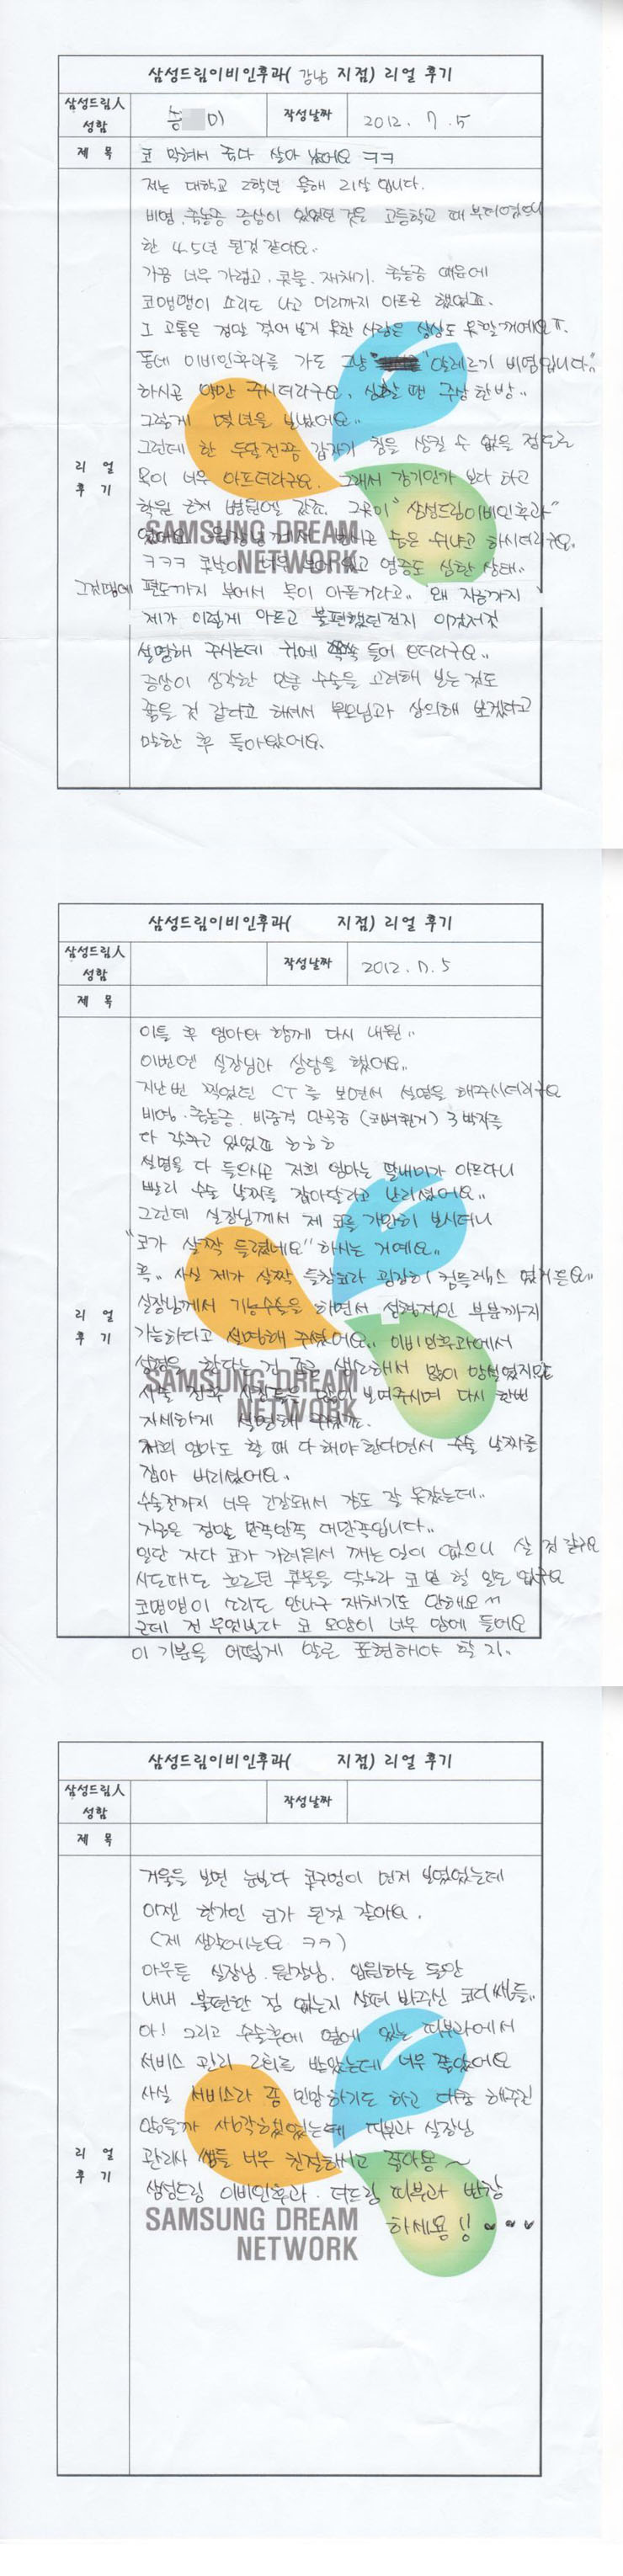 삼성드림이비인후과( 강남 지점) 리얼 후기
삼성드림人
성함
미
작성날짜
2012. 7. 5
제 목
코 막혀서 죽다 살아 났어요 ㅋㅋ
리 얼
후 기
저는 대학교 2학년 올해 21살 입니다.
비염, 축농증 증상이 있었던 것은 고등학교 때 부터였으니
한 4.5년 된것 같아요..
가끔 너무 가렵고, 콧물, 재채기, 축농증 때문에
코맹맹이 소리도 나고 머리까지 아프곤 했었죠.
그 고통은 정말 겪어 보지 못한 사람은 상상도 못할꺼예요 ㅠ.
동네 이비인후과를 가도 그냥 "알레르기 비염입니다"
하시곤 약만 주시더라구요, 심할 땐 주사 한방..
그렇게 몇년을 보냈어요..
그런데 한 두달전쯤 갑자기 침을 삼킬 수 없을 정도로
목이 너무 아프더라구요. 그래서 감기인가 보다 하고
학원 근처 병원엘 갔죠. 그곳이 "삼성드림이비인후과"
였어요. 원장님께서 숨은 쉬냐고 하시더라구요.
ㅋㅋㅋ 콧살이 너무 부어있고 염증도 심한 상태..
그것땜에 편도까지 부어서 목이 아픈거라고.. 왜 지금까지
제가 이렇게 아프고 불편했던건지 이것저것
설명해 주시는데 귀에 쏙쏙 들어 오더라구요..
증상이 심각한 만큼 수술을 고려해 보는 것도
좋을 것 같다고 해서서 부모님과 상의해 보겠다고
말한 후 돌아왔어요.
SAMSUNG DREAM
NETWORK
삼성드림이비인후과( 지점) 리얼 후기
삼성드림人
성함
작성날짜
2012. 7. 5
제 목
리 얼
후 기
이틀 후 엄마와 함께 다시 내원..
이번엔 실장님과 상담을 했어요..
지난번 찍었던 CT를 보면서 설명을 해주시더라구요
비염. 축농증. 비중격 만곡증 (코뼈휜거) 3박자를
다 갖추고 있었죠 ㅎㅎㅎ
설명을 다 들으시곤 저희 엄마는 딸내미가 아프다니
빨리 수술 날짜를 잡아달라고 난리셨어요..
그런데 실장님께서 제 코를 가만히 보시더니
"코가 살짝 들렸네요" 하시는 거예요..
헉.. 사실 제가 살짝 들창코라 굉장히 컴플렉스 였거든요..
실장님께서 기능수술을 하면서 성형적인 부분까지
가능하다고 설명해 주셨어요.. 이비인후과에서
성형을 한다는 건 조금 생소해서 많이 망설였지만
수술 전후 사진들을 많이 보여주시며 다시 한번
자세하게 설명해 주셨죠.
저희 엄마도 할 때 다 해야 한다면서 수술 날짜를
잡아 버리셨어요.
수술전까지 너무 긴장돼서 잠도 잘 못잤는데..
지금은 정말 만족만족 대만족입니다..
일단 자다 코가 가려워서 깨는 일이 없으니 살 것 같구요
시도때도 흐르던 콧물을 닦느라 코 헐 일도 없구요
코맹맹이 소리도 안나구 재채기도 안해요 ^^
근데 전 무엇보다 코 모양이 너무 맘에 들어요
이 기분을 어떻게 말로 표현해야 할 지..
SAMSUNG DREAM
NETWORK
삼성드림이비인후과( 지점) 리얼 후기
삼성드림人
성함
작성날짜
제 목
리 얼
후 기
거울을 보면 눈보다 콧구멍이 먼저 보였었는데
이젠 한가인 코가 된것 같아요.
(제 생각에는요 ㅋㅋ)
아무튼 실장님. 원장님. 입원하는 동안
내내 불편한 점 없는지 살펴 봐주신 코디쌤들..
아! 그리고 수술후에 옆에 있는 피부과에서
서비스 관리 2회를 받았는데 너무 좋았어요
사실 서비스라 좀 민망하기도 하고 대충 해주진
않을까 사실 생각했었는데 피부과 실장님
관리사 쌤들 너무 친절하시고 좋아용~
삼성드림 이비인후과. 더드림 피부과 번창
하세용!! ♥♥♥
SAMSUNG DREAM
NETWORK